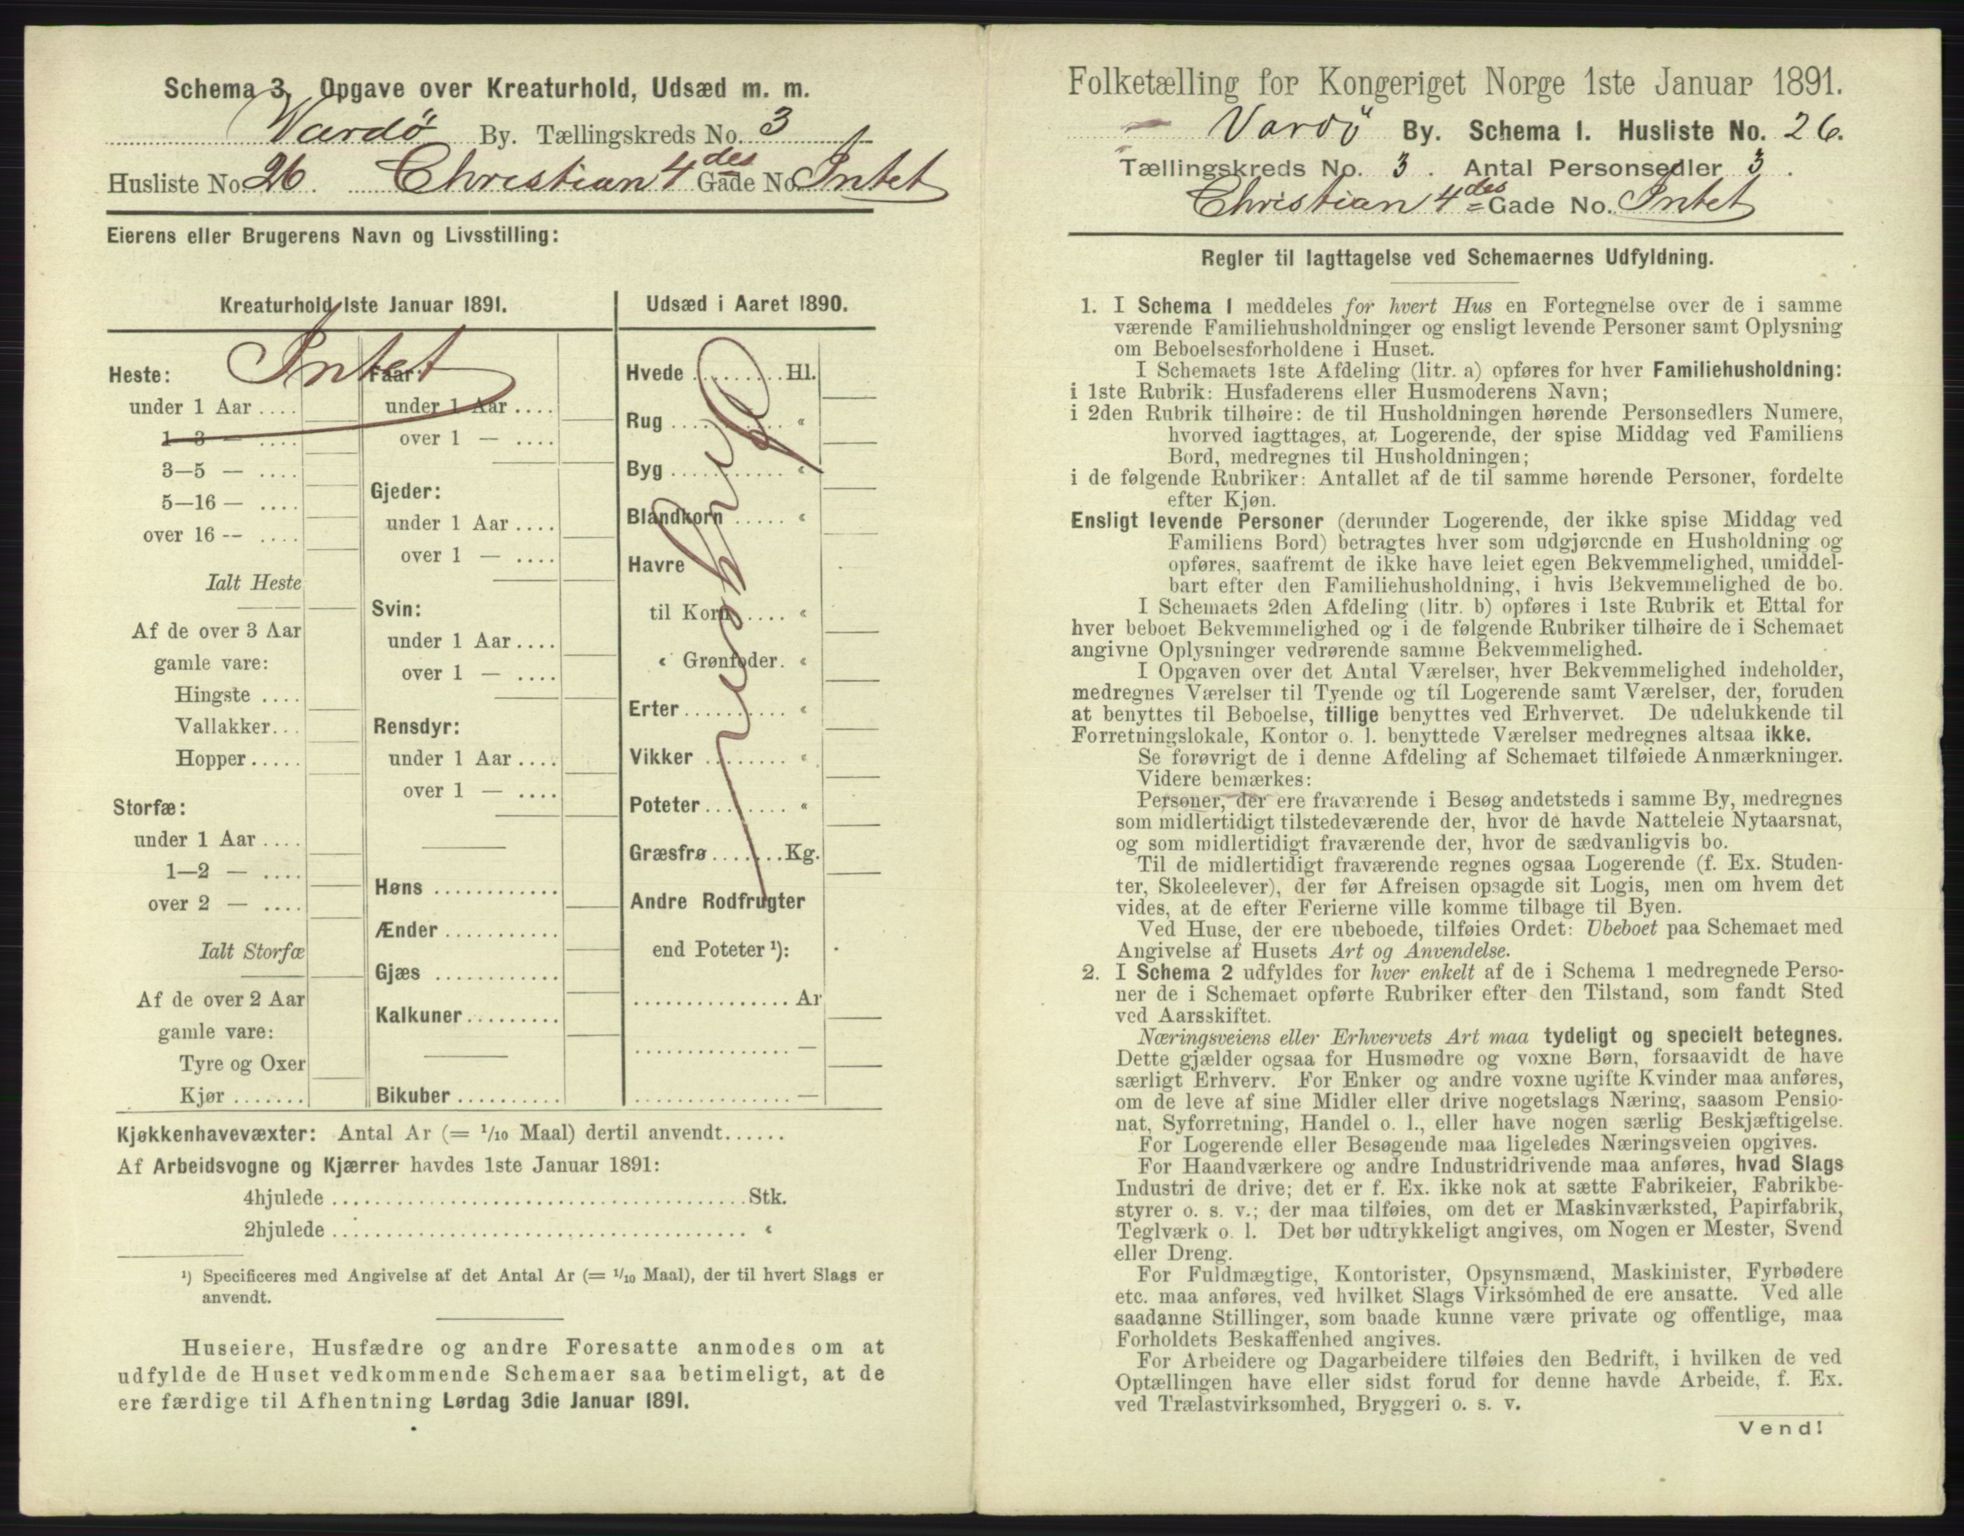 Schema 3. Opgave over Kreaturhold, Udsæd m. m.
Vardø By. Tællingskreds No. 3
Husliste No. 26. Christian 4des Gade No. Intet
Eierens eller Brugerens Navn og Livsstilling:
Kreaturhold 1ste Januar 1891.
Intet
Heste:
under 1 Aar ....
1-3 — ....
3—5 — ....
5—16 — ....
over 16 — ....
Ialt Heste
Af de over 3 Aar
gamle vare:
Hingste ....
Vallakker...
Hopper.....
Storfæ:
under 1 Aar ....
1—2 — ....
over 2 — ....
Ialt Storfæ
Af de over 2 Aar
gamle vare:
Tyre og Oxer
Kjør .......
Faar:
under 1 Aar ....
over 1 — ....
Gjeder:
under 1 Aar ....
over 1 — ....
Svin:
under 1 Aar ....
over 1 — ....
Rensdyr:
under 1 Aar ....
over 1 — ....
Høns ............
Ænder ...........
Gjæs ............
Kalkuner.........
Bikuber ..........
Udsæd i Aaret 1890.
Hvede .........Hl.
Rug .......... «
Byg .......... «
Blandkorn ..... «
Havre
til Korn .... «
« Grønfoder. «
Erter.......... «
Vikker ........ «
Poteter........ «
Græsfrø .......Kg.
Andre Rodfrugter
end Poteter ¹):
............... Ar
............... —
............... —
Kjøkkenhavevæxter: Antal Ar (= 1/10 Maal) dertil anvendt......
Af Arbeidsvogne og Kjærrer havdes 1ste Januar 1891:
4hjulede ........................................Stk.
2hjulede ........................................ «
¹) Specificeres med Angivelse af det Antal Ar (= 1/10 Maal), der til hvert Slags er
anvendt.
Huseiere, Husfædre og andre Foresatte anmodes om at
udfylde de Huset vedkommende Schemaer saa betimeligt, at de
ere færdige til Afhentning Lørdag 3die Januar 1891.
Folketælling for Kongeriget Norge 1ste Januar 1891.
Vardö By. Schema 1. Husliste No. 26.
Tællingskreds No. 3. Antal Personsedler 3.
Christian 4des Gade No. Intet
Regler til Iagttagelse ved Schemaernes Udfyldning.
1. I Schema 1 meddeles for hvert Hus en Fortegnelse over de i samme
værende Familiehusholdninger og ensligt levende Personer samt Oplysning
om Beboelsesforholdene i Huset.
I Schemaets 1ste Afdeling (litr. a) opføres for hver Familiehusholdning:
i 1ste Rubrik: Husfaderens eller Husmoderens Navn;
i 2den Rubrik tilhøire: de til Husholdningen hørende Personsedlers Numere,
hvorved iagttages, at Logerende, der spise Middag ved Familiens
Bord, medregnes til Husholdningen;
i de følgende Rubriker: Antallet af de til samme hørende Personer, fordelte
efter Kjøn.
Ensligt levende Personer (derunder Logerende, der ikke spise Middag ved
Familiens Bord) betragtes hver som udgjørende en Husholdning og
opføres, saafremt de ikke have leiet egen Bekvemmelighed, umiddel-
bart efter den Familiehusholdning, i hvis Bekvemmelighed de bo.
I Schemaets 2den Afdeling (litr. b) opføres i 1ste Rubrik et Ettal for
hver beboet Bekvemmelighed og i de følgende Rubriker tilhøire de i Schemaet
angivne Oplysninger vedrørende samme Bekvemmelighed.
I Opgaven over det Antal Værelser, hver Bekvemmelighed indeholder,
medregnes Værelser til Tyende og til Logerende samt Værelser, der, foruden
at benyttes til Beboelse, tillige benyttes ved Erhvervet. De udelukkende til
Forretningslokale, Kontor o. l. benyttede Værelser medregnes altsaa ikke.
Se forøvrigt de i denne Afdeling af Schemaet tilføiede Anmærkninger.
Videre bemærkes:
Personer, der ere fraværende i Besøg andetsteds i samme By, medregnes
som midlertidigt tilstedeværende der, hvor de havde Natteleie Nytaarsnat,
og som midlertidigt fraværende der, hvor de sædvanligvis bo.
Til de midlertidigt fraværende regnes ogsaa Logerende (f. Ex. Studen-
ter, Skoleelever), der før Afreisen opsagde sit Logis, men om hvem det
vides, at de efter Ferierne ville komme tilbage til Byen.
Ved Huse, der ere ubeboede, tilføies Ordet: Ubeboet paa Schemaet med
Angivelse af Husets Art og Anvendelse.
2. I Schema 2 udfyldes for hver enkelt af de i Schema 1 medregnede Perso-
ner de i Schemaet opførte Rubriker efter den Tilstand, som fandt Sted
ved Aarsskiftet.
Næringsveiens eller Erhvervets Art maa tydeligt og specielt betegnes.
Dette gjælder ogsaa for Husmødre og voxne Børn, forsaavidt de have
særligt Erhverv. For Enker og andre voxne ugifte Kvinder maa anføres,
om de leve af sine Midler eller drive nogetslags Næring, saasom Pensio-
nat, Syforretning, Handel o. l., eller have nogen særlig Beskjæftigelse.
For Logerende eller Besøgende maa ligeledes Næringsveien opgives.
For Haandværkere og andre Industridrivende maa anføres, hvad Slags
Industri de drive; det er f. Ex. ikke nok at sætte Fabrikeier, Fabrikbe-
styrer o. s. v.; der maa tilføies, om det er Maskinværksted, Papirfabrik,
Teglværk o. l. Det bør udtrykkeligt angives, om Nogen er Mester, Svend
eller Dreng.
For Fuldmægtige, Kontorister, Opsynsmænd, Maskinister, Fyrbødere
etc. maa anføres, ved hvilket Slags Virksomhed de ere ansatte. Ved alle
saadanne Stillinger, som baade kunne være private og offentlige, maa
Forholdets Beskaffenhed angives.
For Arbeidere og Dagarbeidere tilføies den Bedrift, i hvilken de ved
Optællingen have eller sidst forud for denne havde Arbeide, f. Ex.
ved Trælastvirksomhed, Bryggeri o. s. v.
Vend!